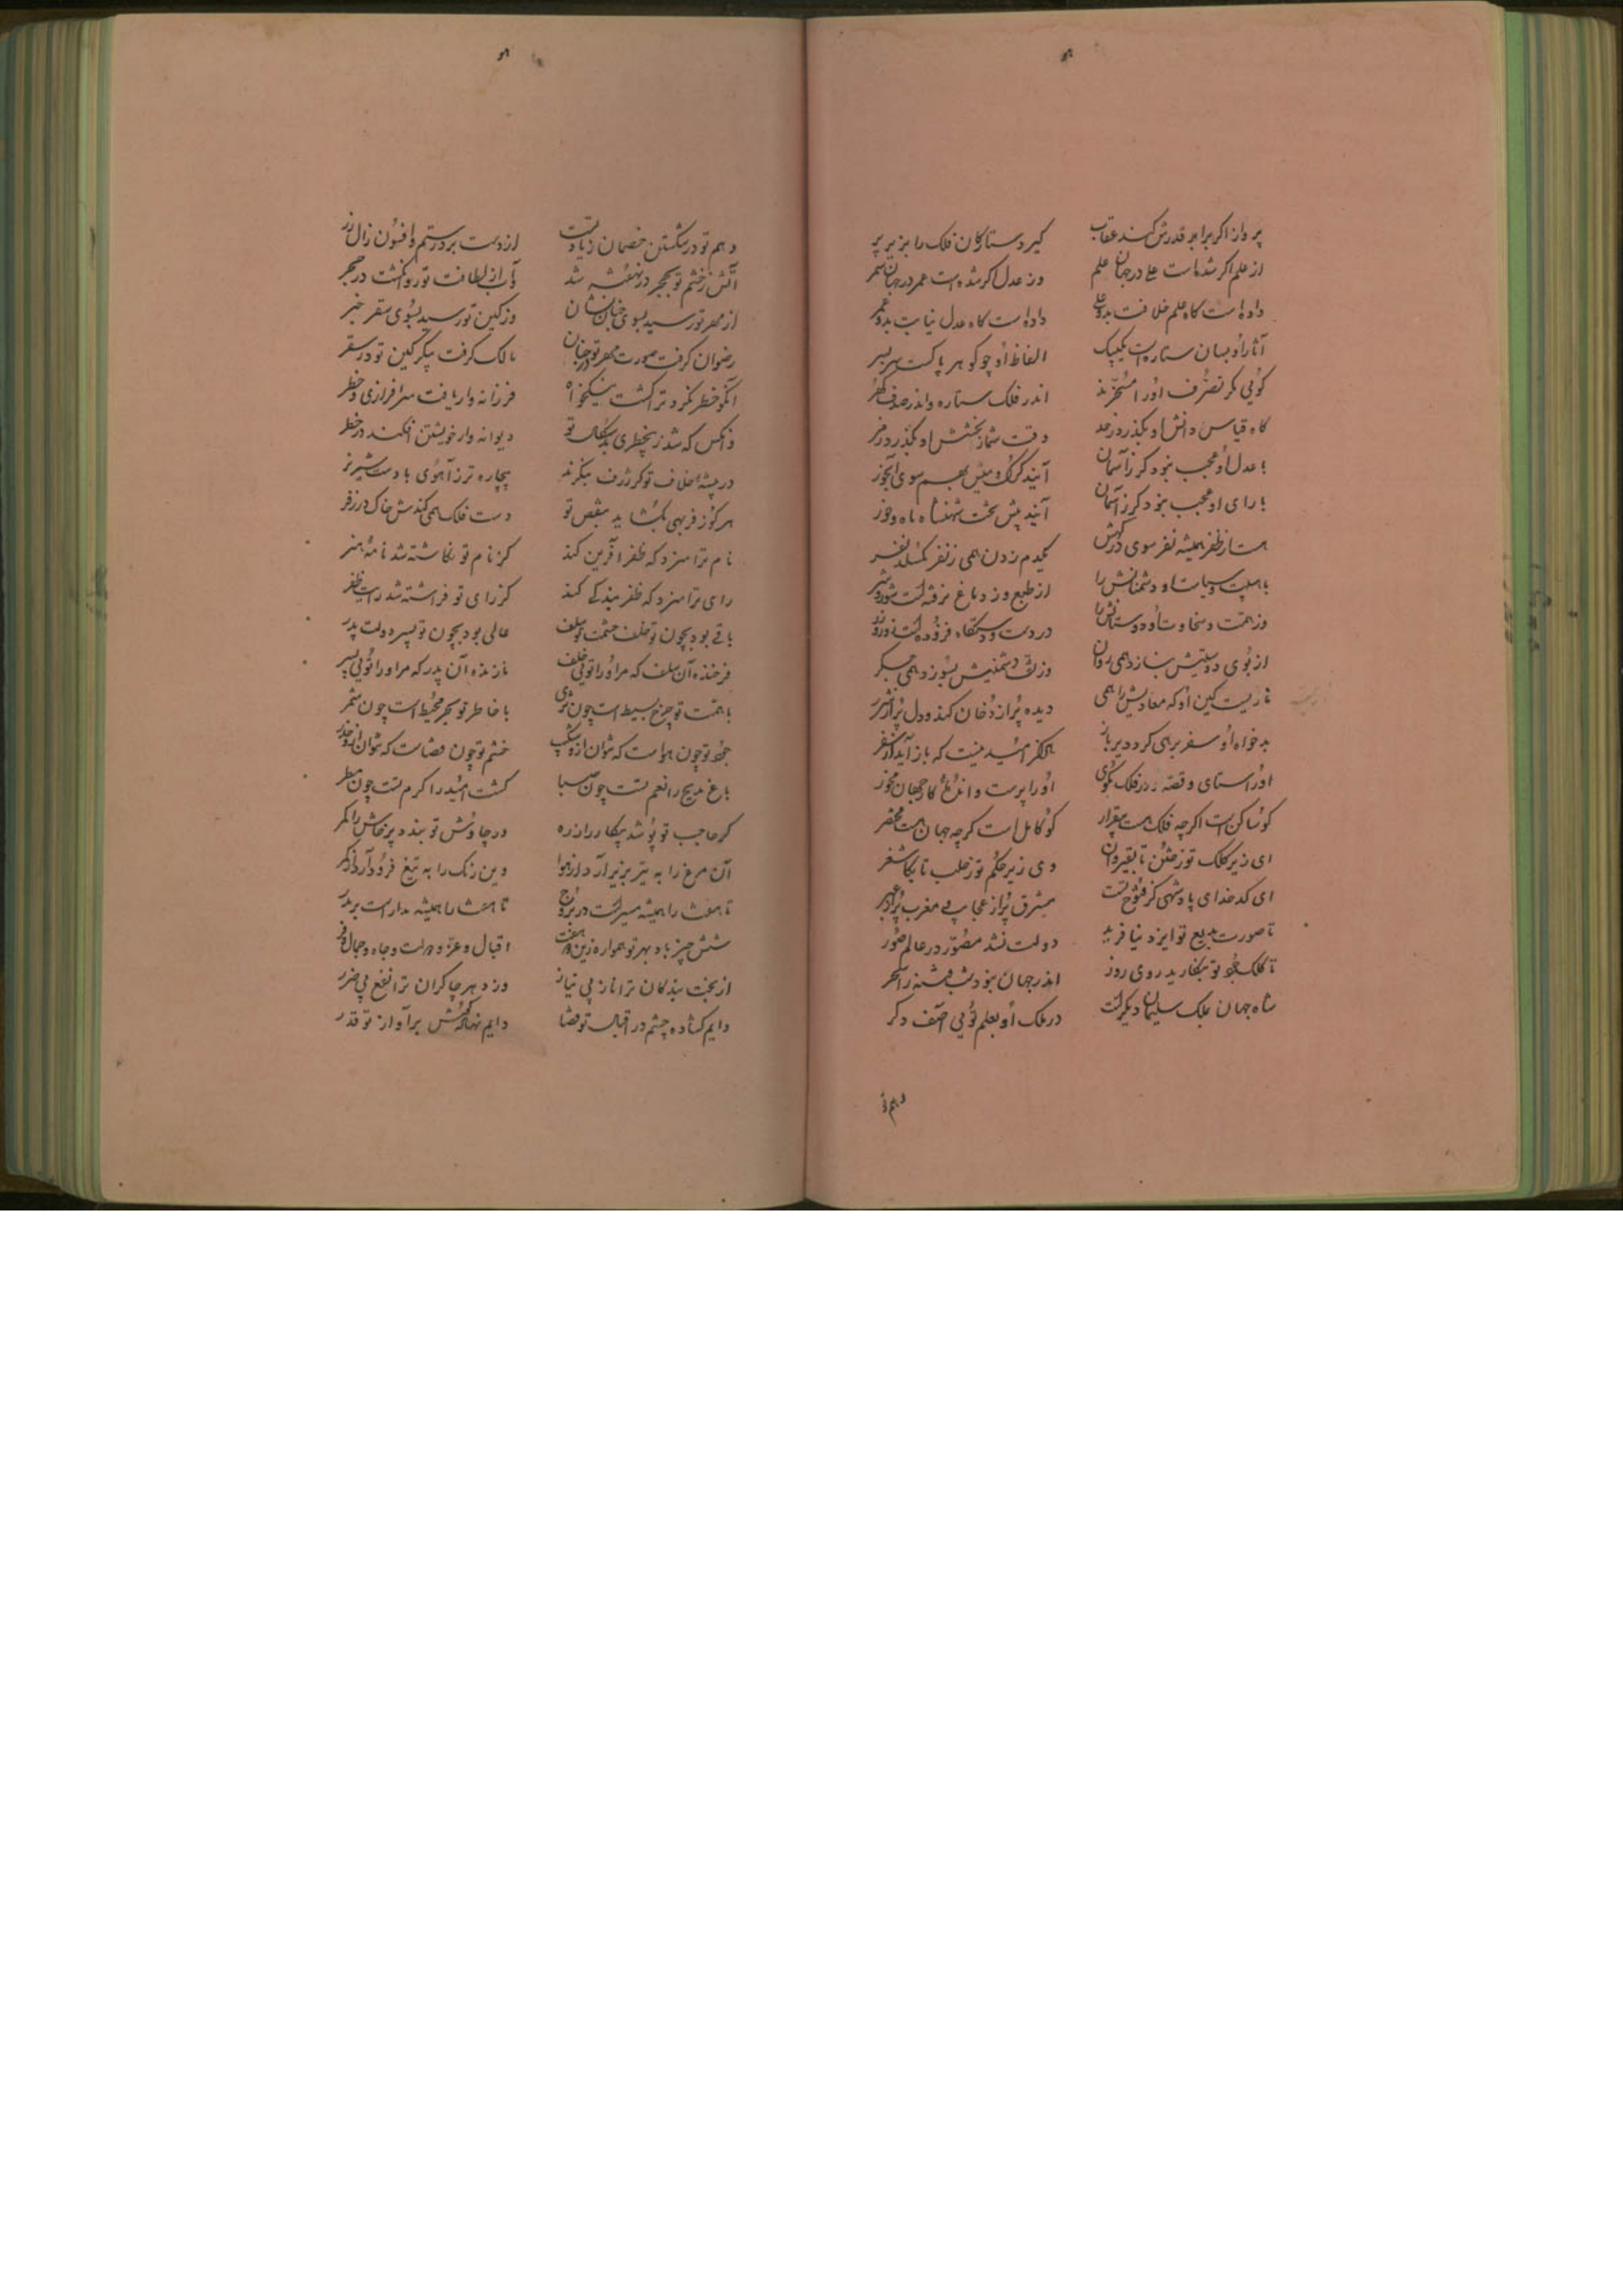 پرواز اگر برابر قدرش کند عقاب گیرد ستارگان فلک را بزیر پر
از علم اگر شده است علی در جهان علم وز عدل اگر شده است عمر در جهان سمر
داده است گاه علم خلافت بدو علی داده است گاه عدل نیابت بدو عمر
آثار او بسان ستاره است یکبیک الفاظ او چو گوهر پاکست سربسر
گویی مگر تصرف او را مسخرند اندر فلک ستاره و اندر صدف گهر
گاه قیاس دانش او بگذرد ز حد وقت شمار بخشش او بگذرد ز مر
با عدل او عجب نبود کز آسمان آیند گرگ و میش بهم سوی آبخور
با رای او عجب نبود کز آسمان آیند پیش تخت شهنشاه ماه و خور
هست از ظفر همیشه نفر سوی درگهش یکدم زدن همی ز نفر نگسلد نفر
با هیبت و سیاست او دشمنانش را از طبع وز دماغ برفته است شور و شر
وز همت و سخاوت او دوستانش را در دست و دستگاه فزوده است زور و زر
از بوی دوستیش بنازد همی روان وز تف دشمنیش بسوزد همی جگر
ناریست کین او که معادیش را همی دیده پر از دخان کند و دل پر از شرر
بدخواه او سفر بر همی گردد دیر باز هرگز امید نیست که باز آید از سفر
او را ستای و قصه دور فلک مگوی او را پرست و اندوه کار جهان مخور
کو ساکن است اگرچه فلک هست بیقرار کو کامل است گرچه جهان هست مختصر
ای زیر کلک تو ز ختن تا بقیروان وی زیر حکم تو ز حلب تا بکاشغر
ای کدخدای پادشهی کز فتوح تست مشرق پر از عجایب و مغرب پر از عبر
تا صورت بدیع تو ایزد نیافرید دولت نشد مصور در عالم صور
تا کلک تو نگارید روی روز اندر جهان نبود شب فتنه را سحر
شاه جهان بملک سلیمان دیگرست در ملک او بعلم تویی آصف دگر
وهم تو
وهم تو در شکستن خصمان زیادتست از دست برد رستم و افسون زال زر
آتش ز خشم تو بحجر در نهفته شد وآب از لطافت تو روان گشت در حجر
از مهر تو رسید بسوی جنان نشان وز کین تو رسید بسوی سقر خبر
رضوان گرفت صورت مهر تو در جنان مالک گرفت پیکر کین تو در سقر
آنکو خطر نکرد و ترا گشت نیکخواه فرزانه وار یافت سرافرازی و خطر
وانکس که شد ز بیخطری بدسگال تو دیوانه وار خویشتن افکند در خطر
در بیشه خلاف تو گر ژرف بنگرند بیچاره تر ز آهوی ماده است شیر نر
هر کو ز فربهی بگشاید بنقص تو دست فلک همی کندش خاک در زفر
نام ترا سزد که ظفر آفرین کند کز نام تو نگاشته شد نامه هنر
رای ترا سزد که ظفر بندگی کند کز رای تو فراشته شد رایت ظفر
باقی بود بچون تو خلف حشمت سلف عالی بود بچون تو پسر دولت پدر
فرخنده آن سلف که مر او را تویی خلف نازنده آن پدر که مر او را تویی پسر
با همت تو چرخ بسیط است چون ثری با خاطر تو بحر محیط است چون شمر
جود تو چون هواست که نتوان ازو شکیب خشم تو چون قضاست که نتوان ازو حذر
باغ مدیح را نعم تست چون صبا کشت امید را کرم تست چون مطر
گر حاجب تو پوشد پیکار را زره ور چاوش تو بندد پرخاش را کمر
آن مرغ را به تیر بزیر آرد از هوا وین رنگ را به تیغ فرود آرد از کمر
تا هفت را همیشه مسیر است در بروج تا هفت را همیشه مدار است بر مدر
شش چیز باد بهر تو همواره زین دو هفت اقبال و عز و دولت و جاه و جمال و فر
از بخت بندگان ترا ناز بی نیاز وز دهر چاکران ترا نفع بی ضرر
دایم گشاده چشم در اقبال تو قضا دایم نهاده گوش بر آواز تو قدر